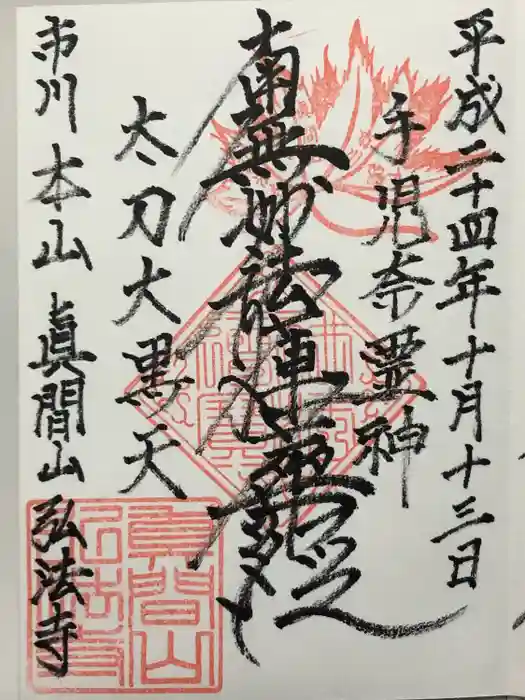 平成二十四年十月十三日
手児奈霊神
南無妙法蓮華経
太刀大黒天
市川 本山 真間山 弘法寺
眞間山
弘法寺